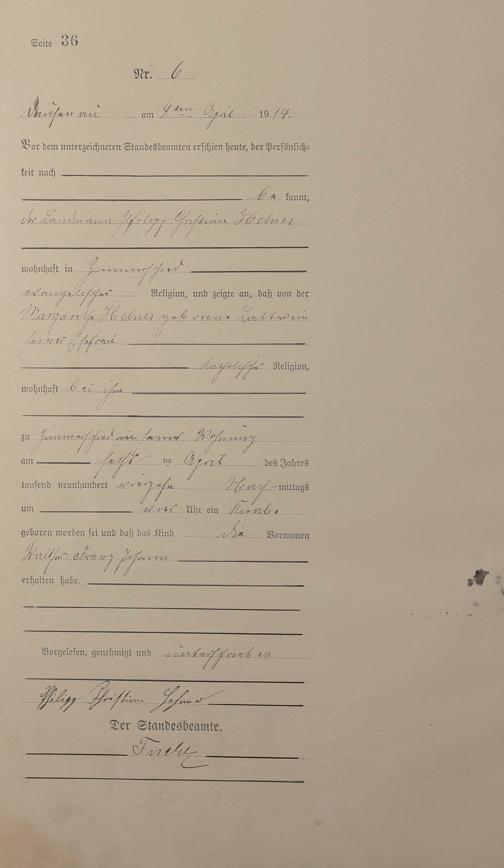 Seite 36
Nr. 6
Dausenau am 9ten April 1914.
Vor dem unterzeichneten Standesbeamten erschien heute, der Persönlich-
keit nach
be kannt,
der Landmann Philipp Christian
wohnhaft in Zimmerschied
evangelischer Religion, und zeigte an, daß von der
Margarethe geborene
seiner Ehefrau
katholischer Religion,
wohnhaft bei ihm
zu Zimmerschied in seiner Wohnung
am sechs ten April des Jahres
tausend neunhundert vierzehn Nach mittags
um vier Uhr ein Knabe
geboren worden sei und daß das Kind die Vornamen
Walther Franz Johann
erhalten habe.
Vorgelesen, genehmigt und unterschrieben
Philipp Christian
Der Standesbeamte.